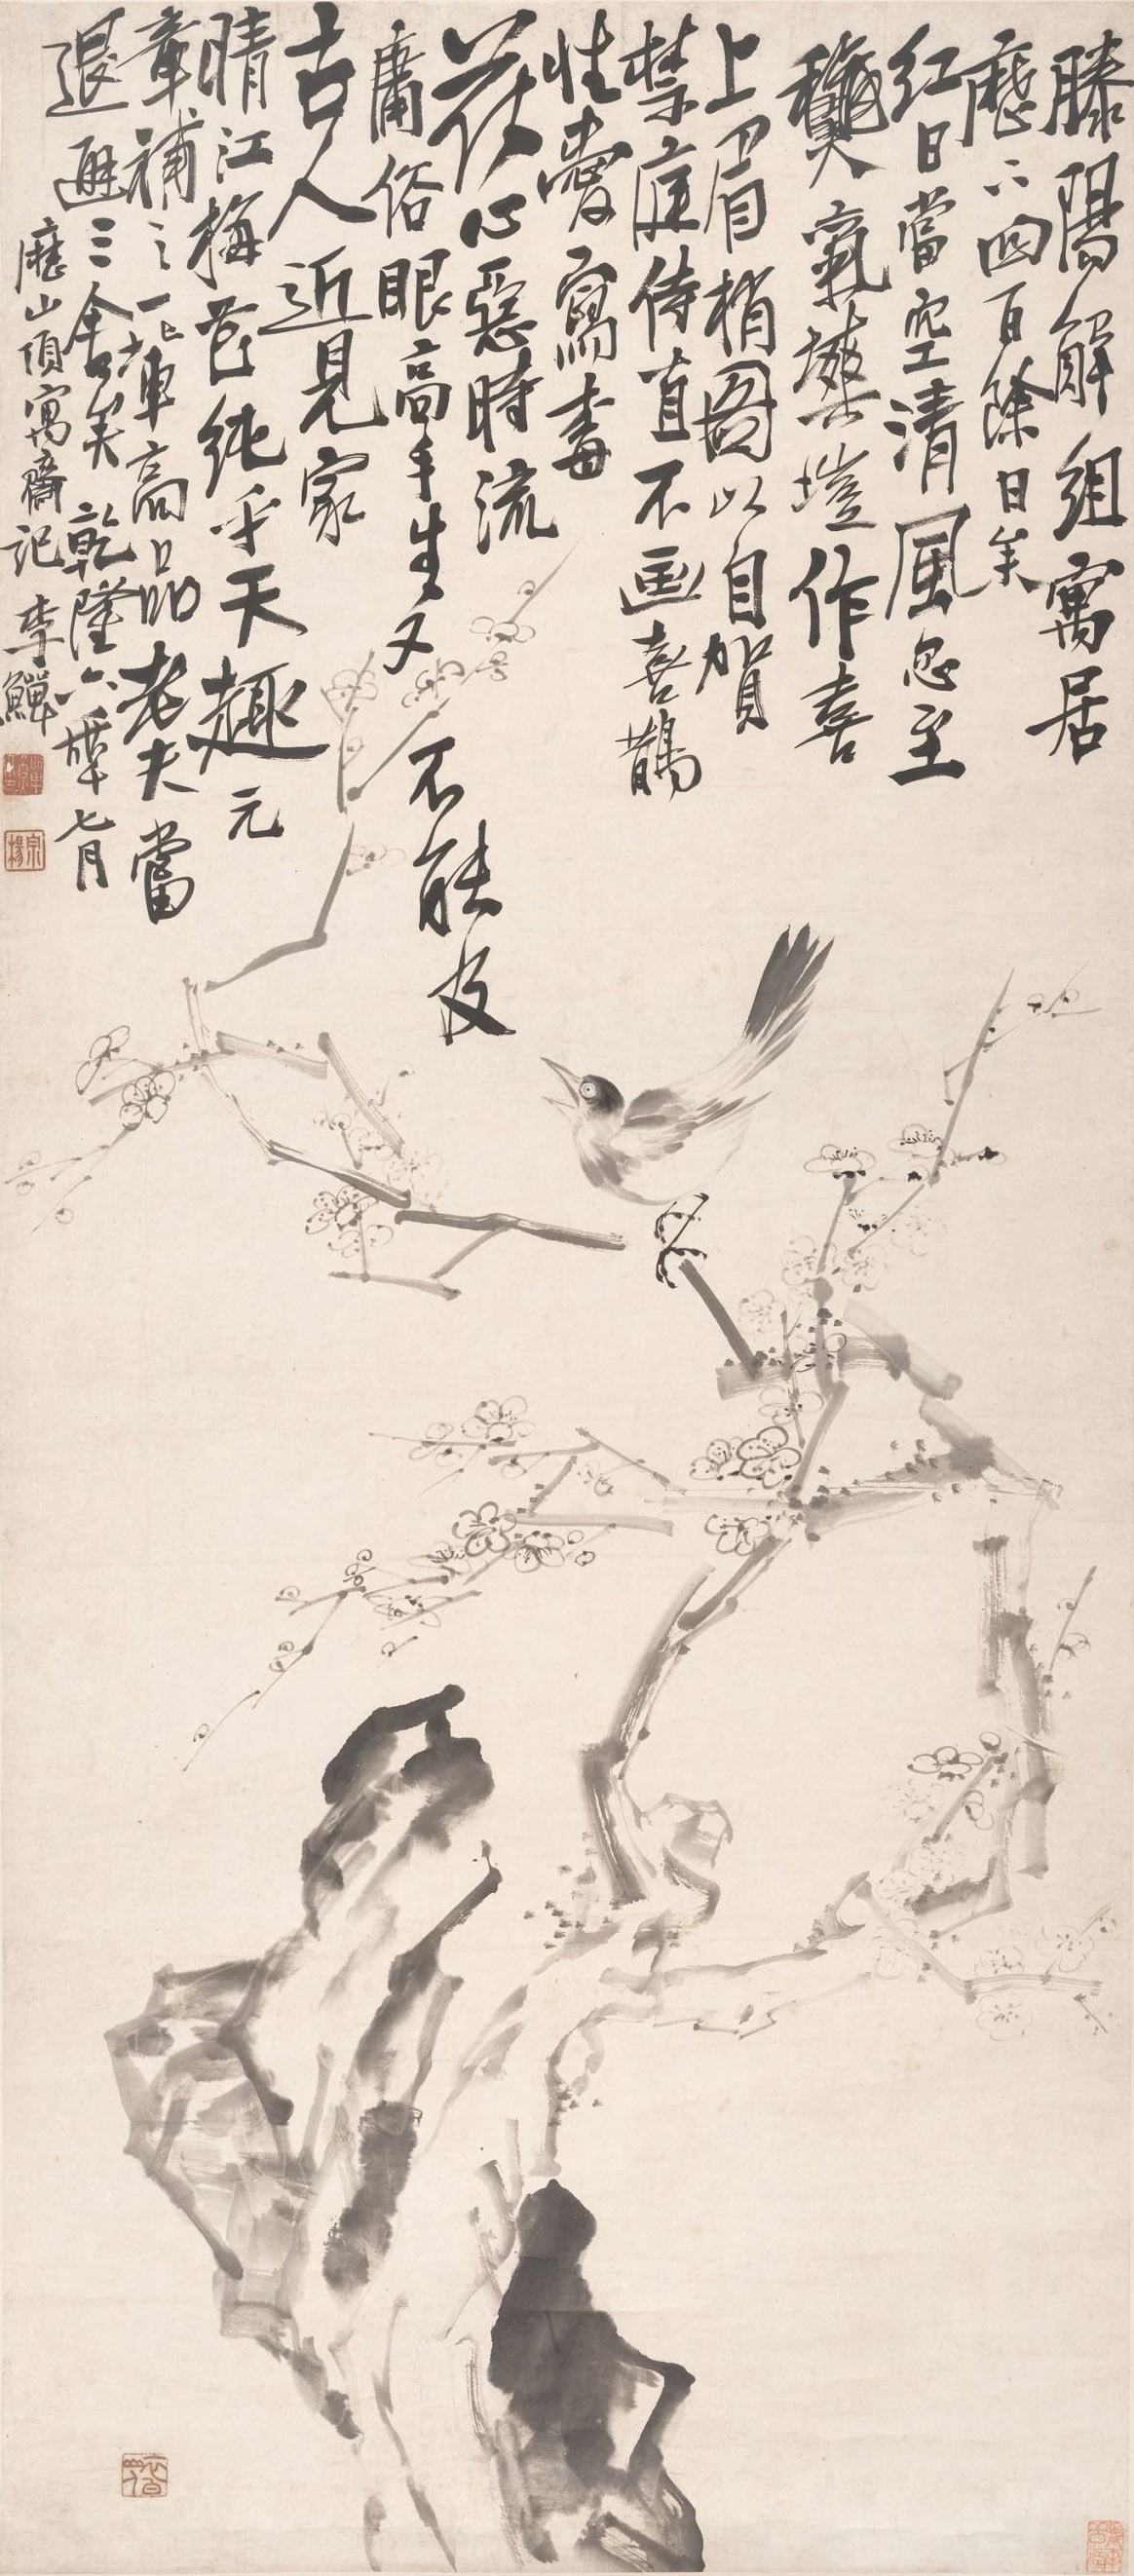 滕陽解組寓居
歷下四百除日矣
紅日當空清風忽至
穢氣㷫塏作喜
上眉梢圖以自賀
禁庭侍直不画喜鵲
性愛寫梅
花心惡時流
庸俗眼高手生又不能及
古人近見家
晴江梅花純乎天趣元
章補之一輩高品老夫當
退避三舍矣 乾隆六年七月
歷山頂寓齋記 李鱓